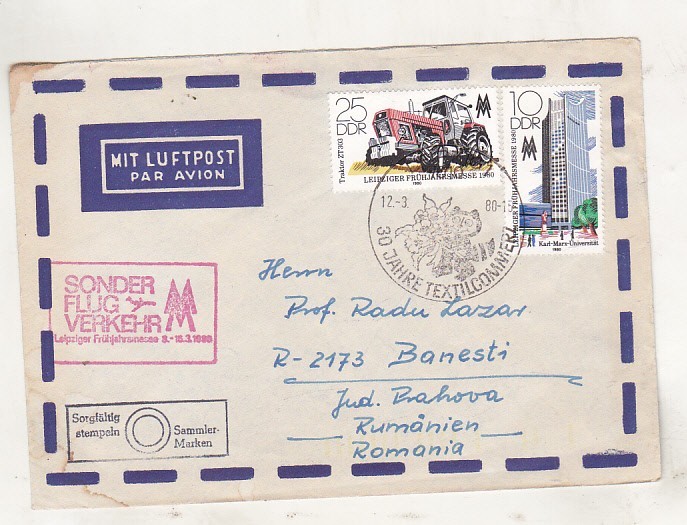 25
DDR
Traktor ZT 303
LEIPZIGER FRÜHJAHRSMESSE 1980
1980
10
DDR
LEIPZIGER FRÜHJAHRSMESSE 1980
Karl-Marx-Universität
1980
MIT LUFTPOST
PAR AVION
12.-3.
80-15
30 JAHRE TEXTILCOMMERZ
SONDER
FLUG
VERKEHR
Leipziger Frühjahrsmesse 9.-16.3.1980
Herrn
Prof. Radu Lazar
R-2173 Banesti
Jud. Prahova
Rumänien
Romania
Sorgfältig
stempeln
Sammler-
Marken